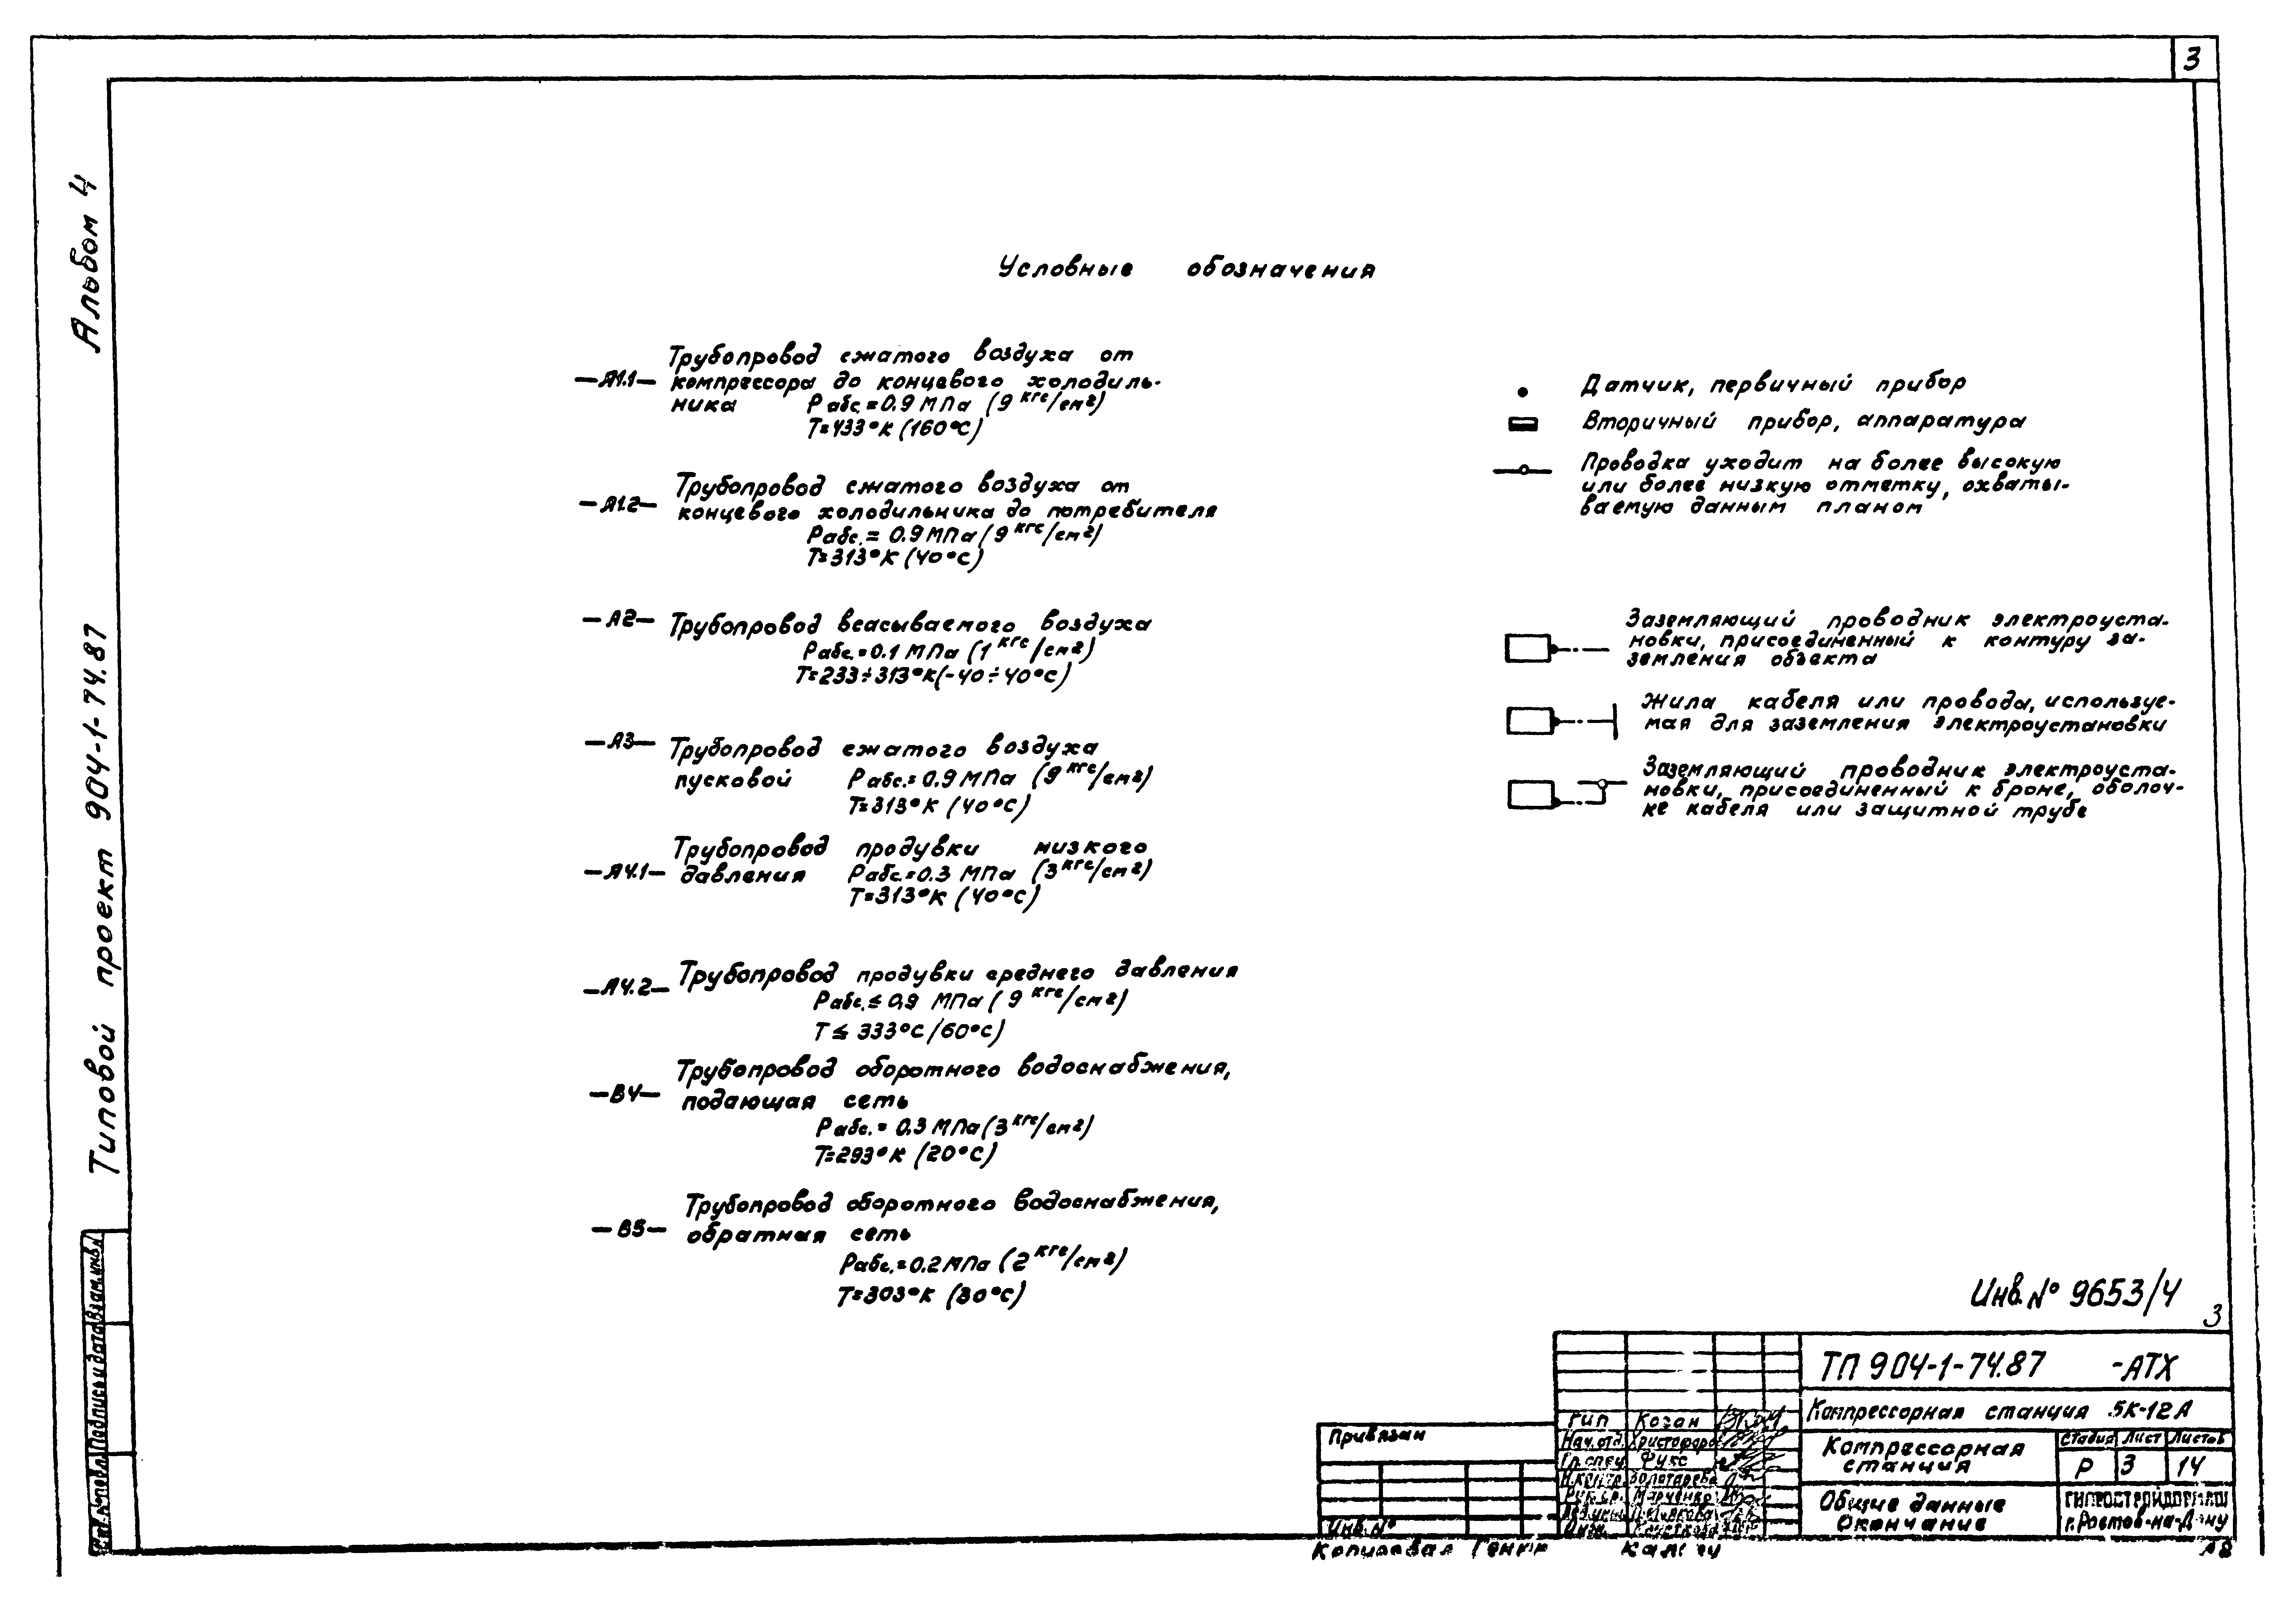 3
Альбом 4
Типовой проект 904-1-74.87
Условные обозначения
—А1.1— Трубопровод сжатого воздуха от
компрессора до концевого холодиль-
ника Рабс.=0.9 МПа (9 кгс/см²)
Т=433°К (160°С)
—А1.2— Трубопровод сжатого воздуха от
концевого холодильника до потребителя
Рабс.= 0.9 МПа (9 кгс/см²)
Т=313°К (40°С)
—А2— Трубопровод всасываемого воздуха
Рабс.=0.1 МПа (1 кгс/см²)
Т=233÷313°К (-40÷40°С)
—А3— Трубопровод сжатого воздуха
пусковой Рабс.=0.9 МПа (9 кгс/см²)
Т=313°К (40°С)
—А4.1— Трубопровод продувки низкого
давления Рабс.=0.3 МПа (3 кгс/см²)
Т=313°К (40°С)
—А4.2— Трубопровод продувки среднего давления
Рабс.≤ 0,9 МПа (9 кгс/см²)
Т ≤ 333°С (60°С)
—В4— Трубопровод оборотного водоснабжения,
подающая сеть
Рабс.= 0.3 МПа (3 кгс/см²)
Т=293°К (20°С)
—В5— Трубопровод оборотного водоснабжения,
обратная сеть
Рабс.=0.2 МПа (2 кгс/см²)
Т=303°К (30°С)
Датчик, первичный прибор
Вторичный прибор, аппаратура
Проводка уходит на более высокую
или более низкую отметку, охваты-
ваемую данным планом
Заземляющий проводник электроуста-
новки, присоединенный к контуру за-
земления объекта
Жила кабеля или провода, используе-
мая для заземления электроустановки
Заземляющий проводник электроуста-
новки, присоединенный к броне, оболоч-
ке кабеля или защитной трубе
Инв. № 9653/4
3
ТП 904-1-74.87 -АТХ
Компрессорная станция 5К-12А
Компрессорная
станция
Стадия Лист Листов
Р 3 14
Общие данные
Окончание
г. Ростов-на-Дону
ГИП Коган
Нач. отд.
Гл. спец Фукс
Н.контр. Золотарева
Марченко
Привязан
Инв. №
Копировал
Взам. инв. №
Подпись и дата